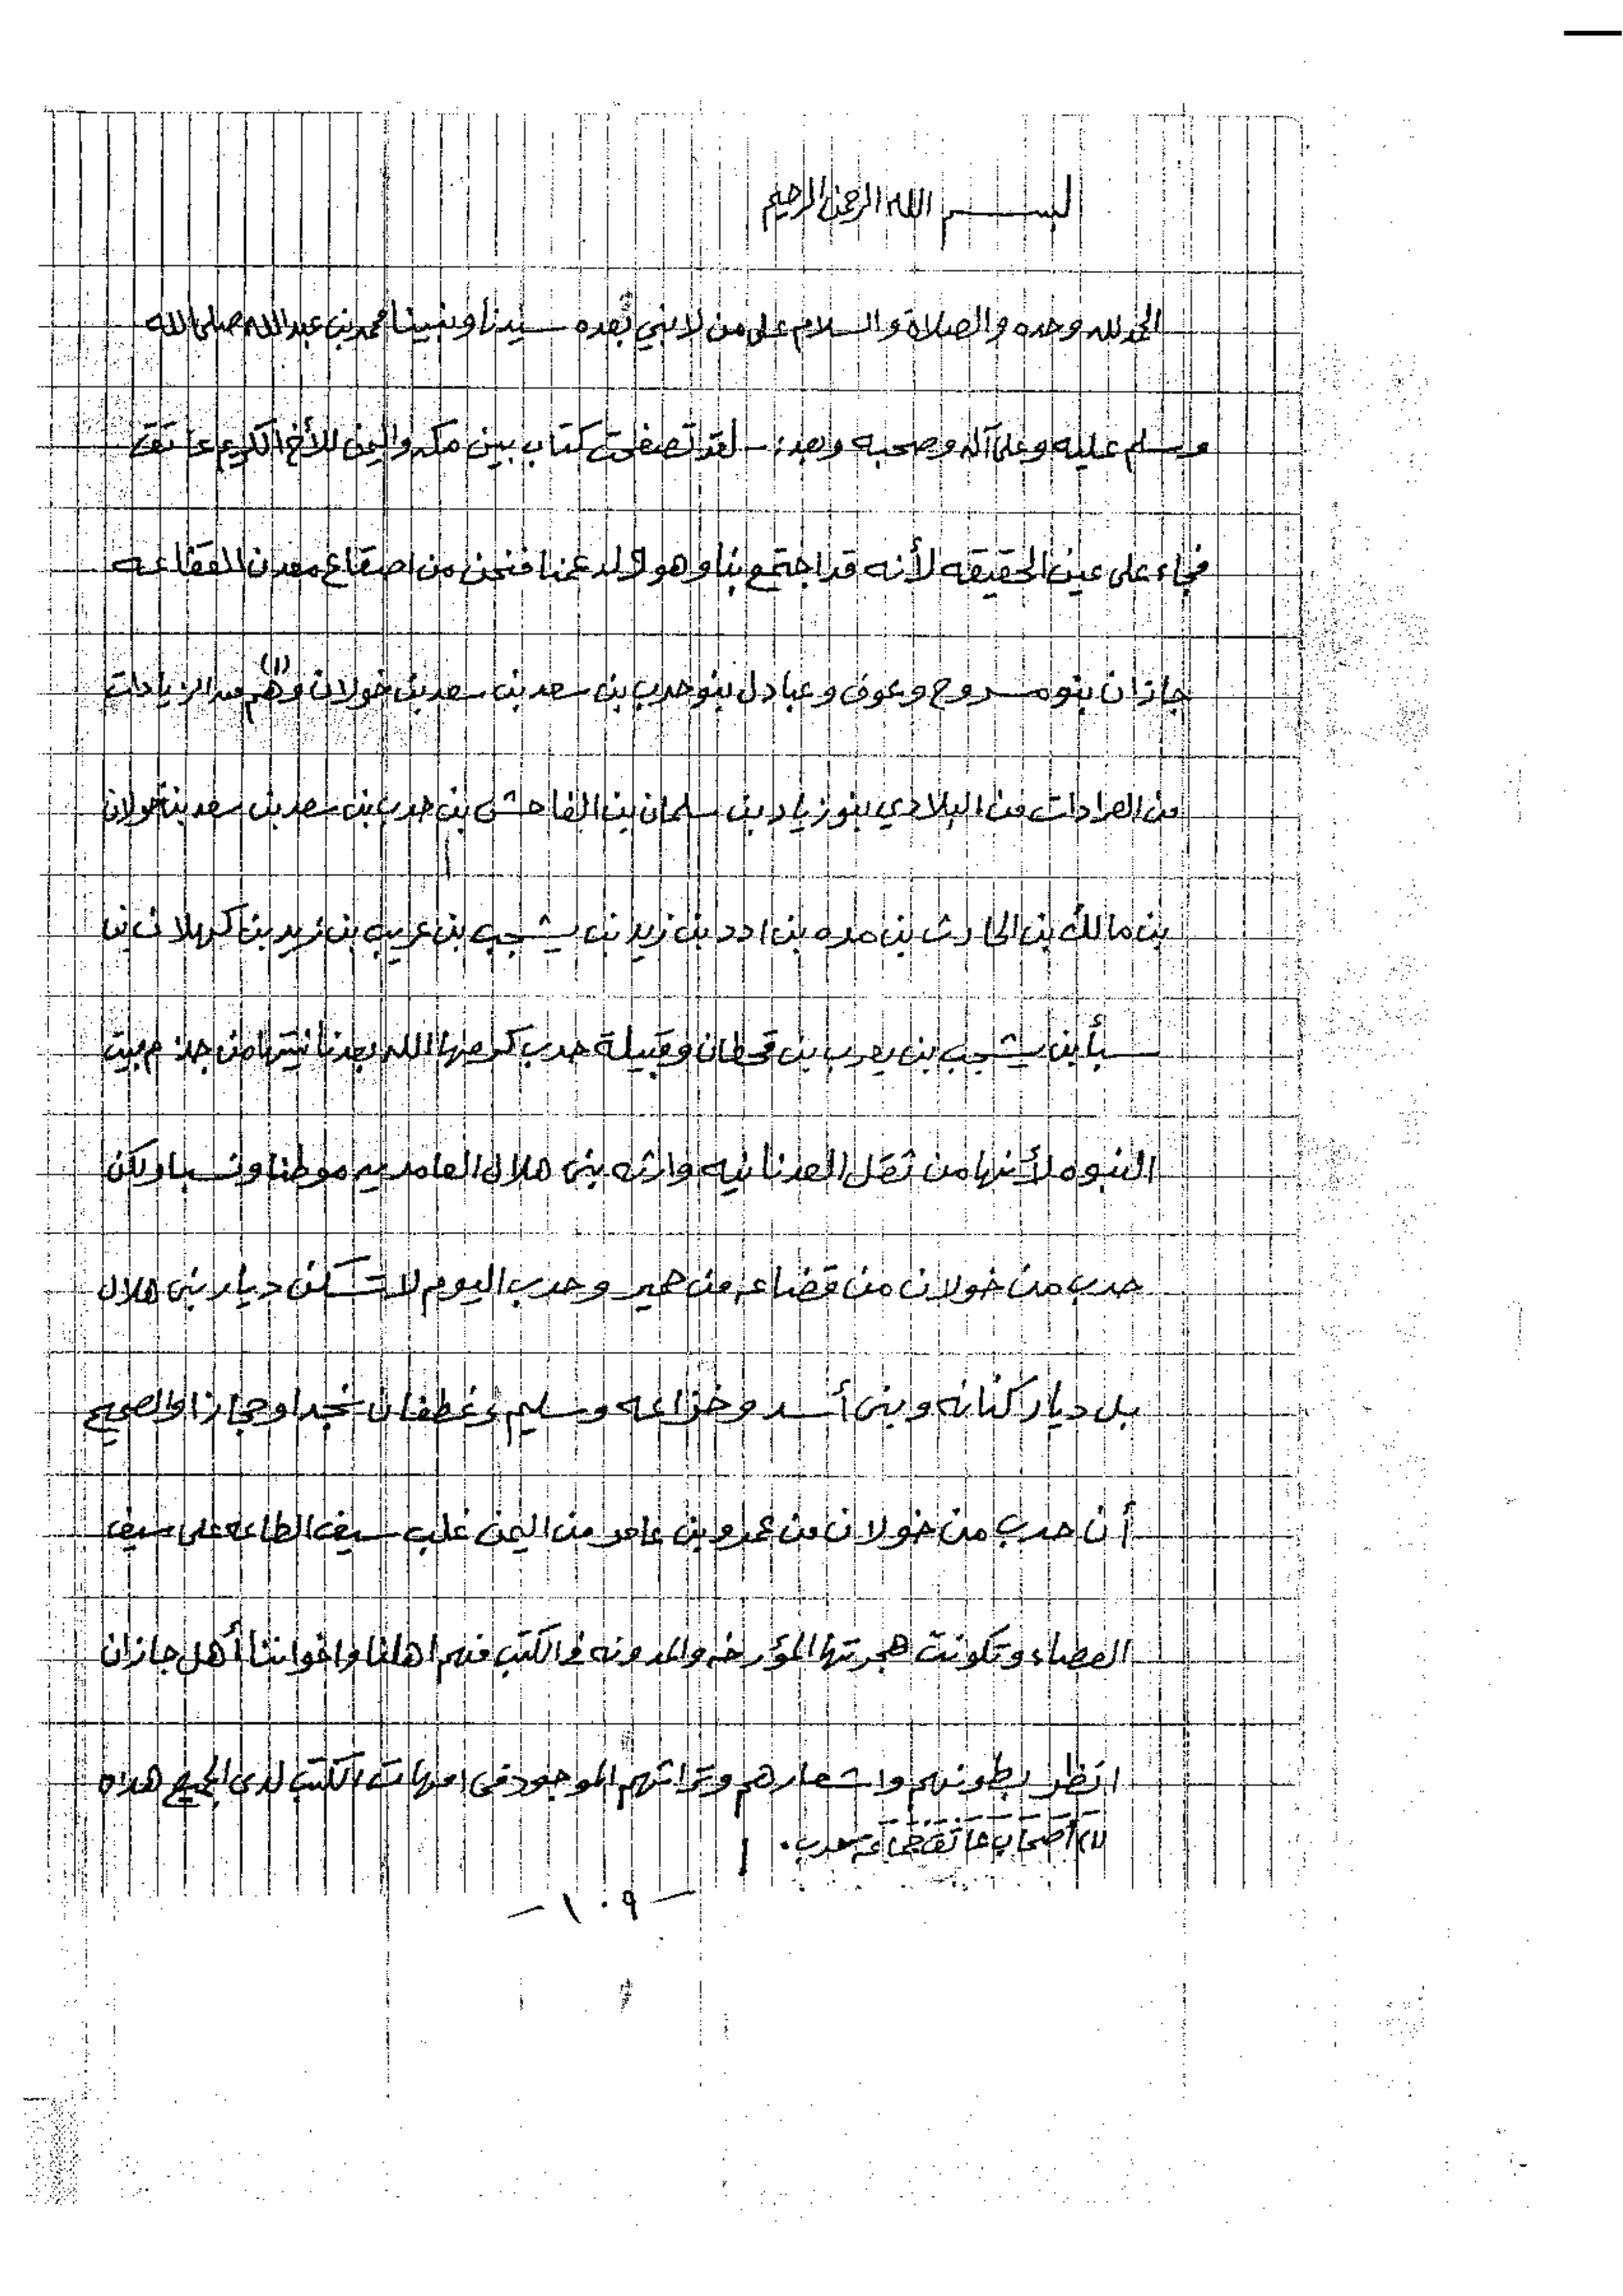 بســـم الله الرحمن الرحيم
الحمد لله وحده والصلاة والسلام على من لا نبي بعده سيدنا ونبينا محمد بن عبد الله صلى الله
وسلم عليه وعلى آله وصحبه وبعد :- لقد تصفحت كتاب بين مكه واليمن للأخ الكريم عاتق
فجاء على عين الحقيقه لأنه قد اجتمع بنا وهو فنحن من اصقاع معدن القفاعه
جازان بنو مسروح وعوف وعبادل بنو حرب بن سعد بن سعد بن خولان وهم (١) من الزيادات
من العرادات من البلادي بنو زياد بن سلمان بن الفاحش بن حرب بن سعد بن سعد بن خولان
بن مالك بن الحارث بن مره بن ادد بن زيد بن يشجب بن عريب بن زيد بن كهلان بن
سبأ بن يشجب بن يعرب بن قحطان وقبيلة حرب كرمها الله بعدنانيتها من جذم بيت
النبوه لأنها من ثقل العدنانيه وارثه بنى هلال العامريه موطنا ونسبا ولكن
حرب من خولان من قضاعه من حمير وحرب اليوم لا تسكن ديار بنى هلال
بل ديار كنانه وبنى أسد وخزاعه وسليم وغطفان نجدا وحجازا والصحيح
أن حرب من خولان من عمرو بن عامر من اليمن غلب سيف الطاعه على سيف
العصاء وتكونت هجرتها المؤرخه والمدونه في الكتب فهم اهلنا واخواننا أهل جازان
انظر بطونهم واشعارهم وتراثهم الموجود في امهات الكتب لدى الجميع هداه
(١) أصحاب عاتق جماعة حرب .
- ١٠٩ -